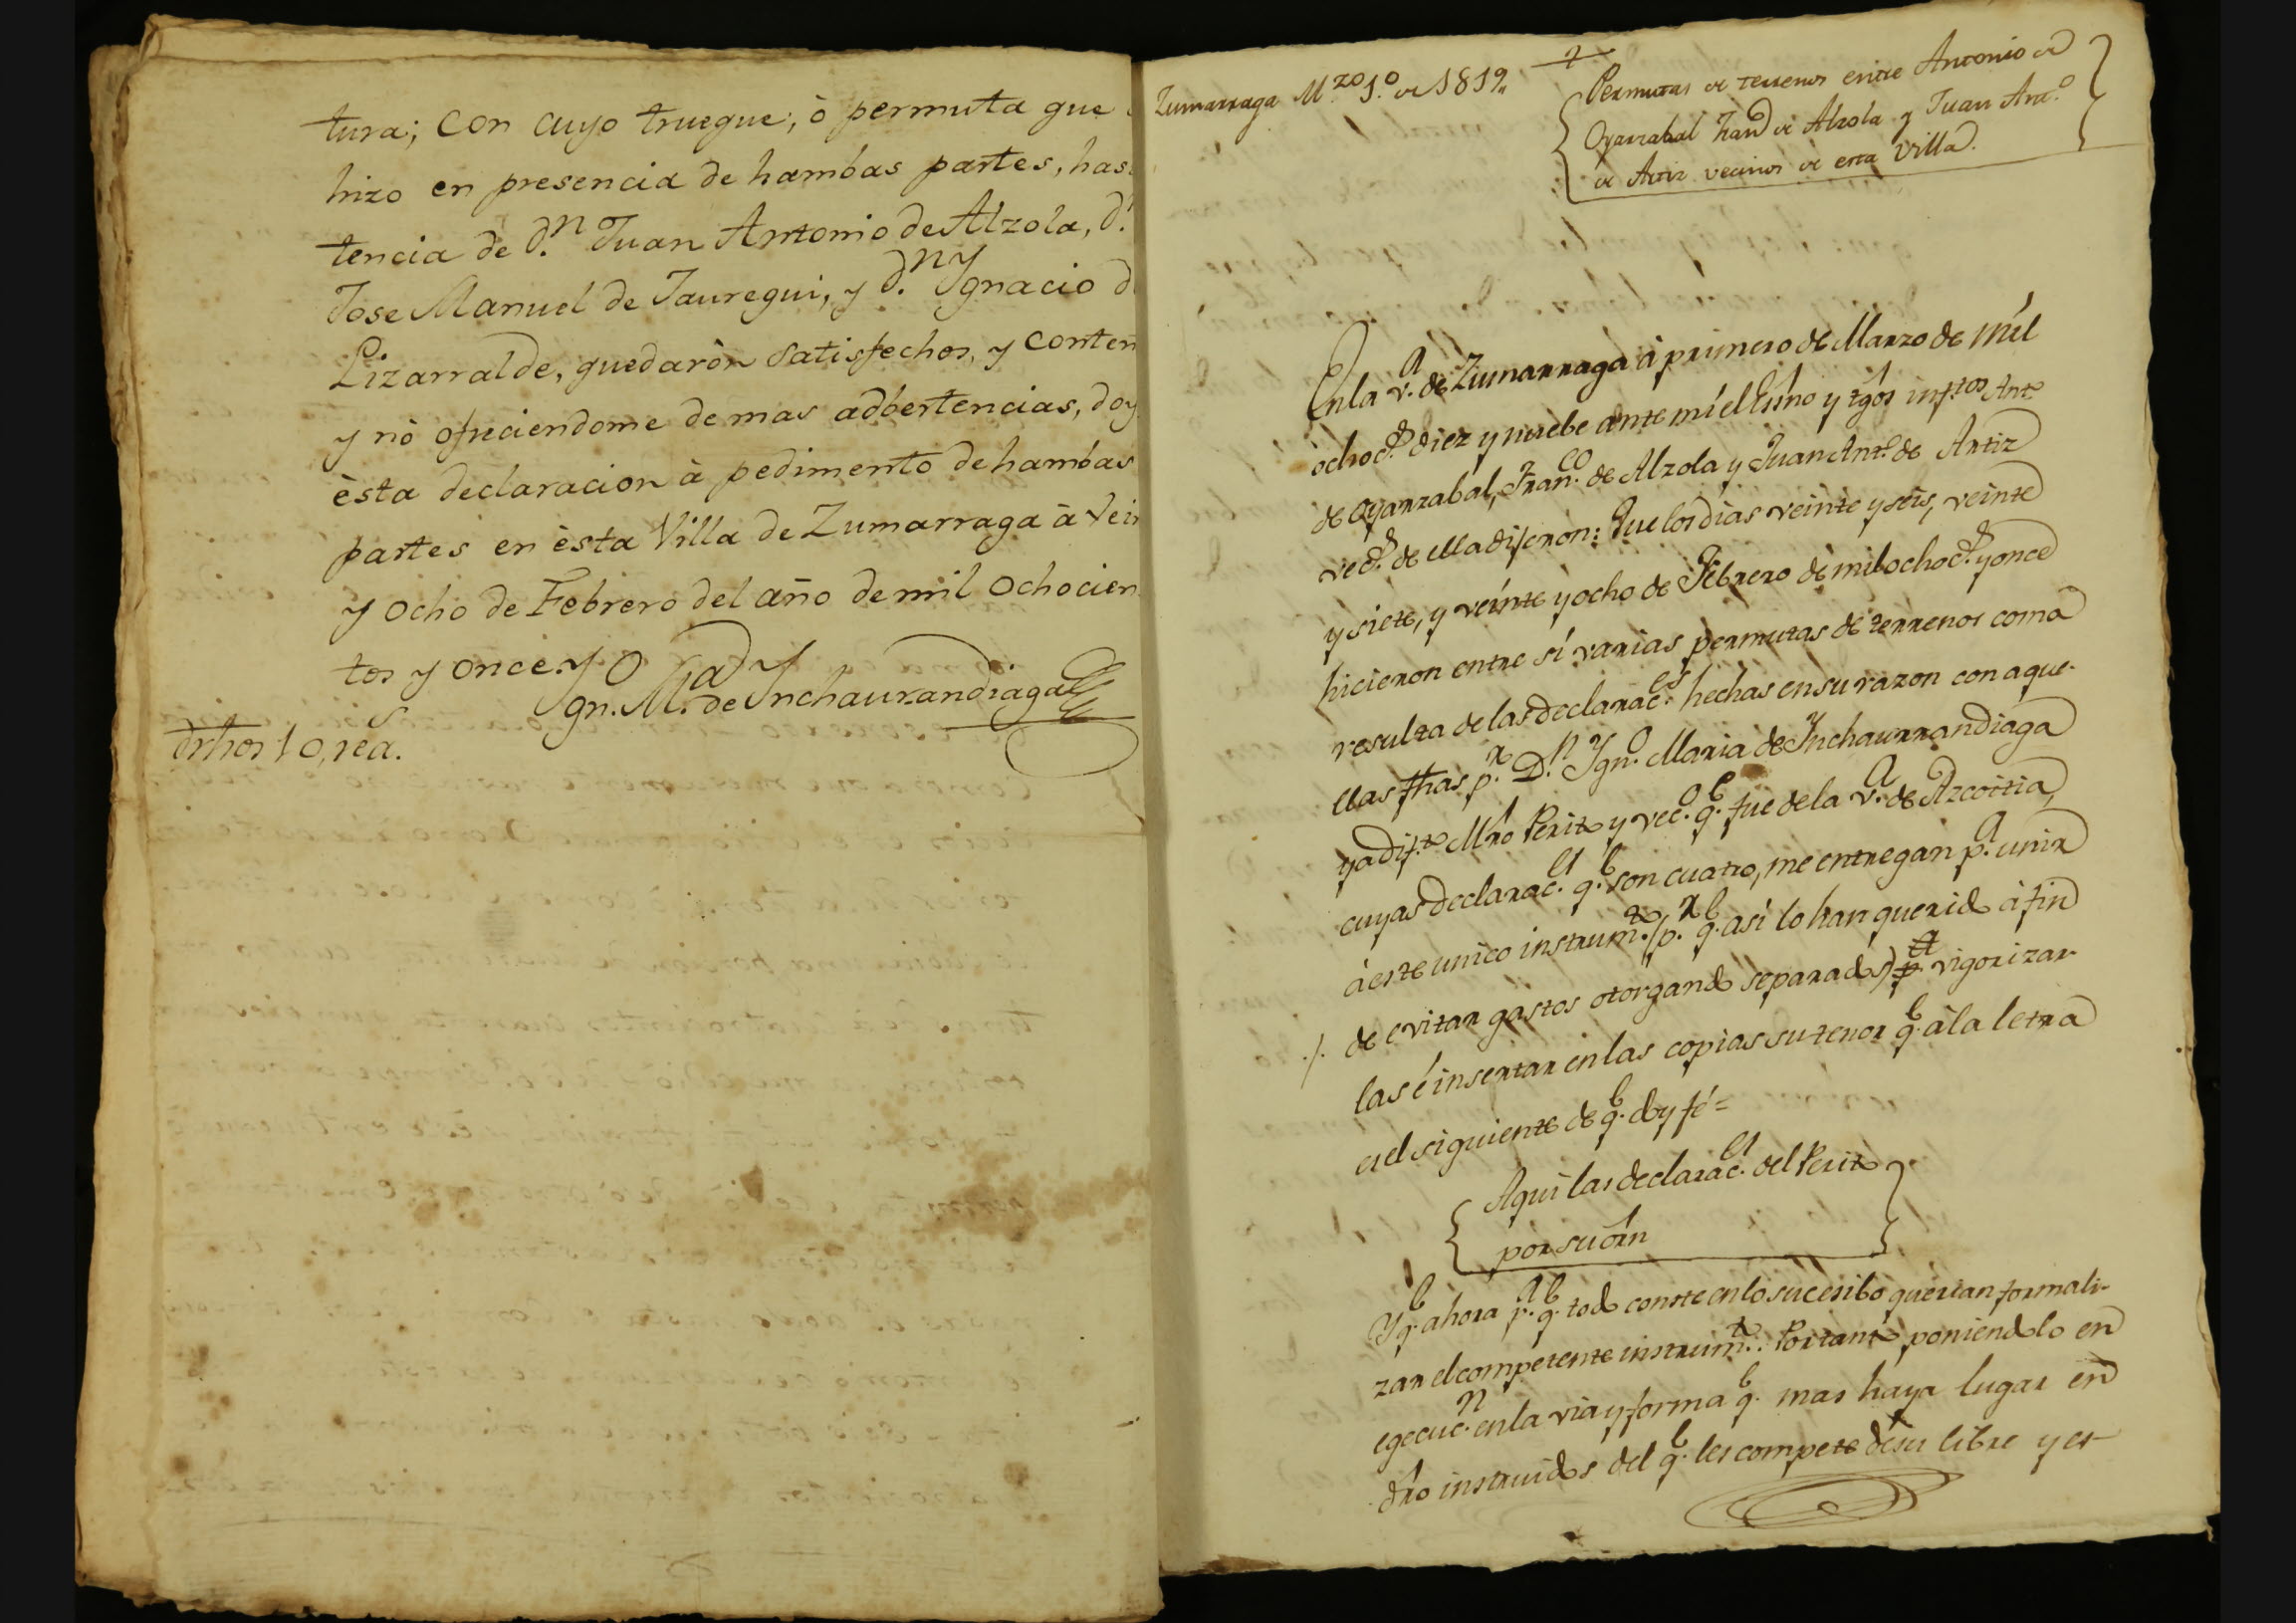 tura; con cuyo trueque, ò permuta que
hizo en presencia de hambas partes, has
tencia de d.n Juan Antonio de Alzola, d.
Jose Manuel de Jauregui, y d.n Ygnacio d
Lizarralde, quedaròn satisfechos, y conten
y nò ofreciendome de mas adbertencias, doy
èsta declaracion à pedimento de hambas
partes en èsta Villa de Zumarraga à Vein
y ocho de Febrero del año de mil ochocien
tos y once.
Ygn.o M.a de Ynchaurrandiaga
drhos 10, rea.s
Zumarraga M.zo 1.o de 1819
Permutas de terrenos entre Antonio de
Oyarzabal Fran.co de Alzola y Juan Ant.o
de Artiz vecinos de esta Villa.
En la v.a de Zumarraga à primero de Marzo de mil
ochoc.s diez y nuebe ante mí el Esno y tgos infros Ant.o
de Oyarzabal, Fran.co de Alzola y Juan Ant.o de Artiz
vec.s de ella dixeron: Que los dias veinte y seis, veinte
y siete, y veinte y ocho de Febrero de mil ochoc.s y once
hicieron entre sí varias permutas de terrenos como
resulta de las declarac.es hechas en su razon con aque-
llas fhas p.r D.n Ygn.o Maria de Ynchaurrandiaga
ya dif.to Mro Perito y vec.o q.e fue de la v.a de Azcoitia,
cuyas declarac.es q.e son cuatro, me entregan p.a unir
à este unico instrum.to (p.r q.e así lo han querido à fin
de evitar gastos otorgando separados) p.a vigorizar-
las é insertar en las copias su tenor q.e à la letra
es el siguiente de q.e doy fé=
Aqui las declarac.es del Perito
por su orn
Y q.e ahora p.a q.e todo conste en lo sucesibo querian formali-
zar el competente instrum.to: Por tanto poniendolo en
egecuc.n en la via y forma q.e mas haya lugar en
dro instruidos del q.e les compete de su libre y es-